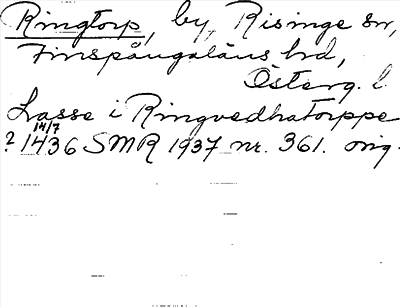 Ringtorp, by, Risinge sn,
Finspångaläns hd,
Österg. l.
Lasse i Ringvedhatorppe
14/7
? 1436 SMR 1937 nr. 361. orig.